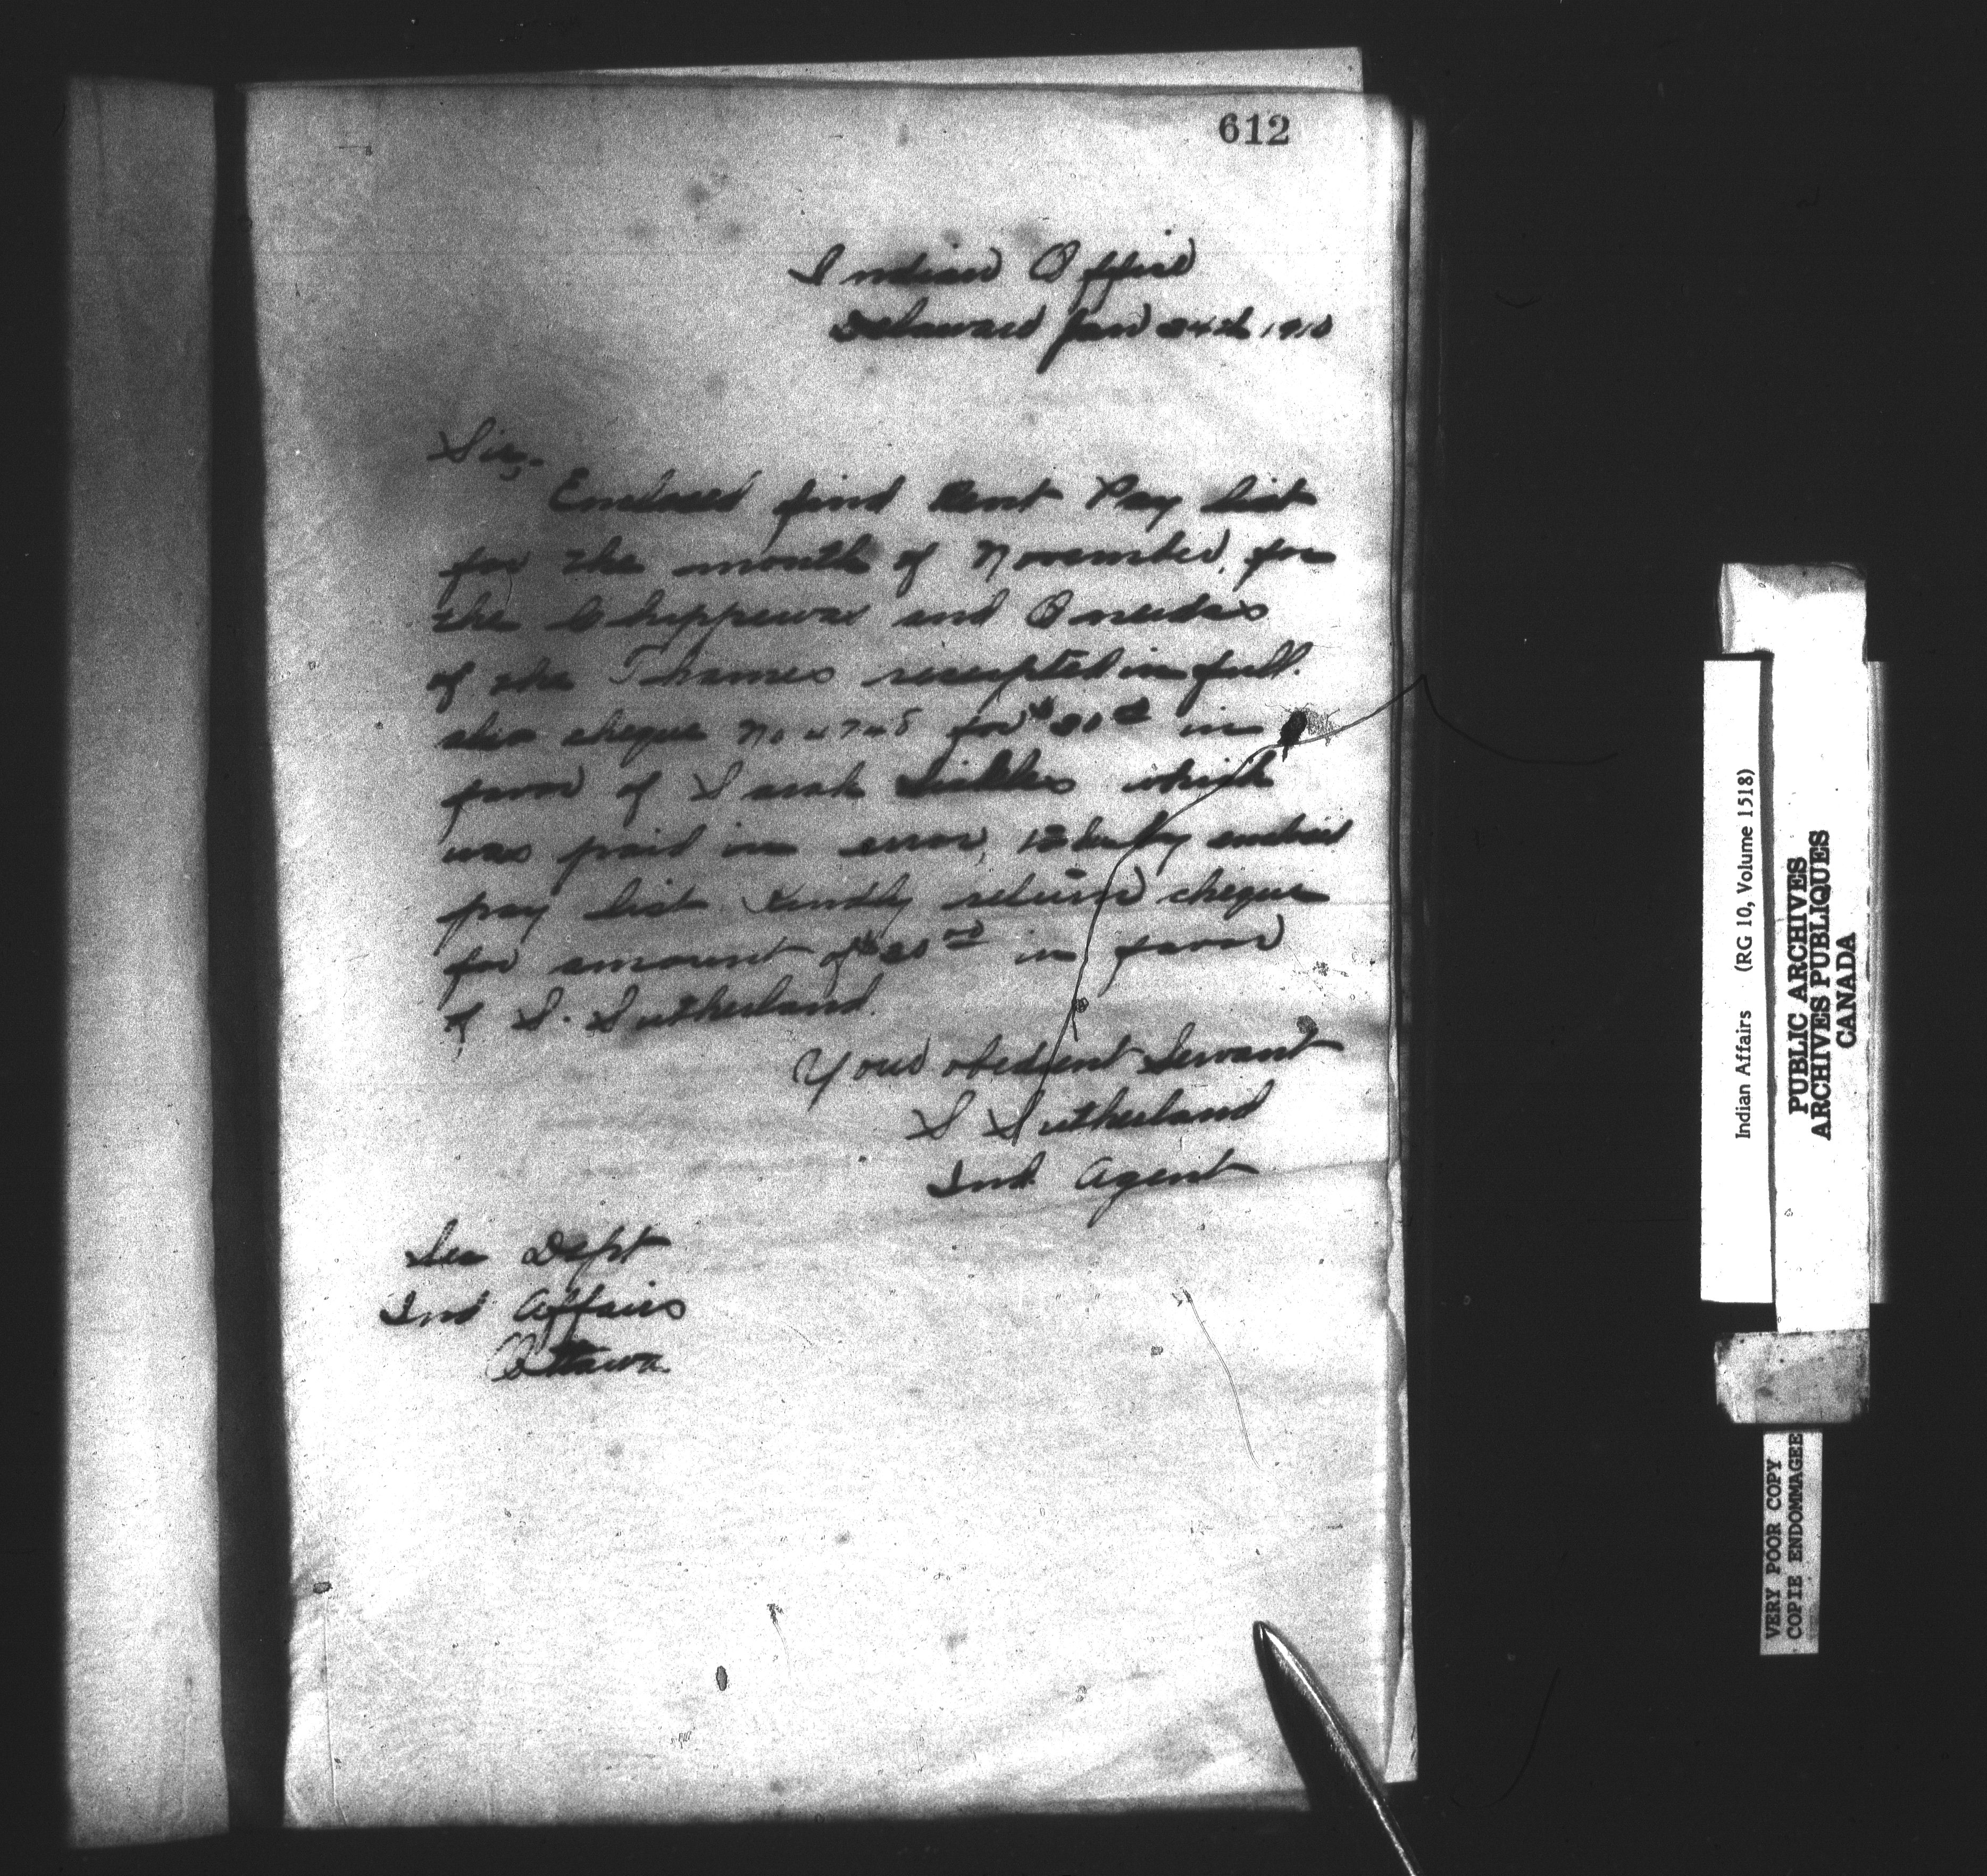 612
Indian Office
Delaware Jan 24th 1910
Sir,-
Enclosed find Rent Pay list
for the month of November, for
the Chippewas and Oneidas
of the Thames receipted in full.
also cheque No for $ in
favor of Sarah Sickles which
was paid in error, by
pay list. Kindly return cheque
for amount of $ in favor
of S. Sutherland.
Your obedient Servant
S Sutherland
Ind. Agent
Sec Dept
Ind Affairs
Ottawa.
Indian Affairs (RG 10, Volume 1518)
PUBLIC ARCHIVES
ARCHIVES PUBLIQUES
CANADA
VERY POOR COPY
COPIE ENDOMMAGEE